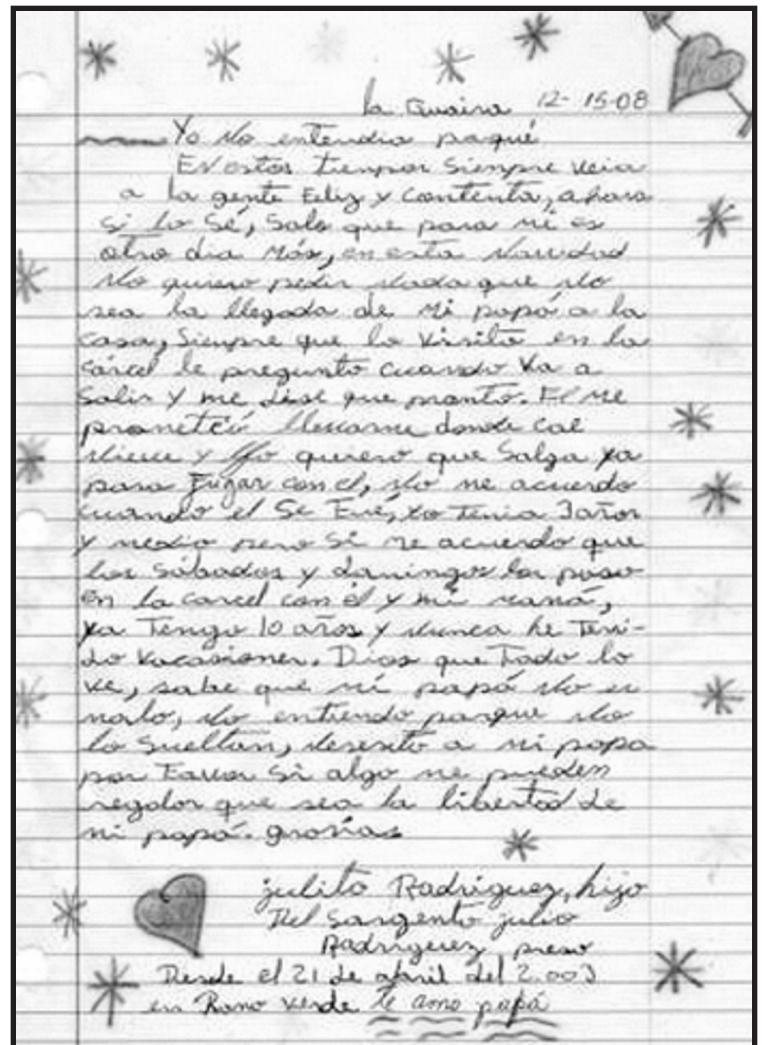 la Guaira 12-15-08
Yo No entendia porqué
EN estos tiempos Siempre veia
a la gente Feliz y contenta, ahora
si Lo Sé, Solo que para mi es
otro dia Más, en esta Navidad
No quiero pedir Nada que No
sea la llegada de Mi papá a la
casa, Siempre que lo visito en la
cárcel le pregunto cuando va a
Salir y me Dise que pronto. El Me
prometió llevarme donde cae
Nieve y Yo quiero que Salga ya
para Jugar con el, No me acuerdo
cuando el Se Fué, yo Tenia 3 años
y medio pero Si me acuerdo que
los Sábados y domingos los paso
en la carcel con él y mi mamá,
ya Tengo 10 años y Nunca he Teni-
do vacasiones. Dios que Todo lo
ve, sabe que mi papá No es
malo, No entiendo porque No
lo Sueltan, Nesesito a mi papa
por Favor Si algo me pueden
regalar que sea la libertad de
mi papá. grasias
julito Rodriguez, hijo
Del Sargento julio
Rodriguez, preso
Desde el 21 de abril del 2.003
en Ramo verde te amo papá